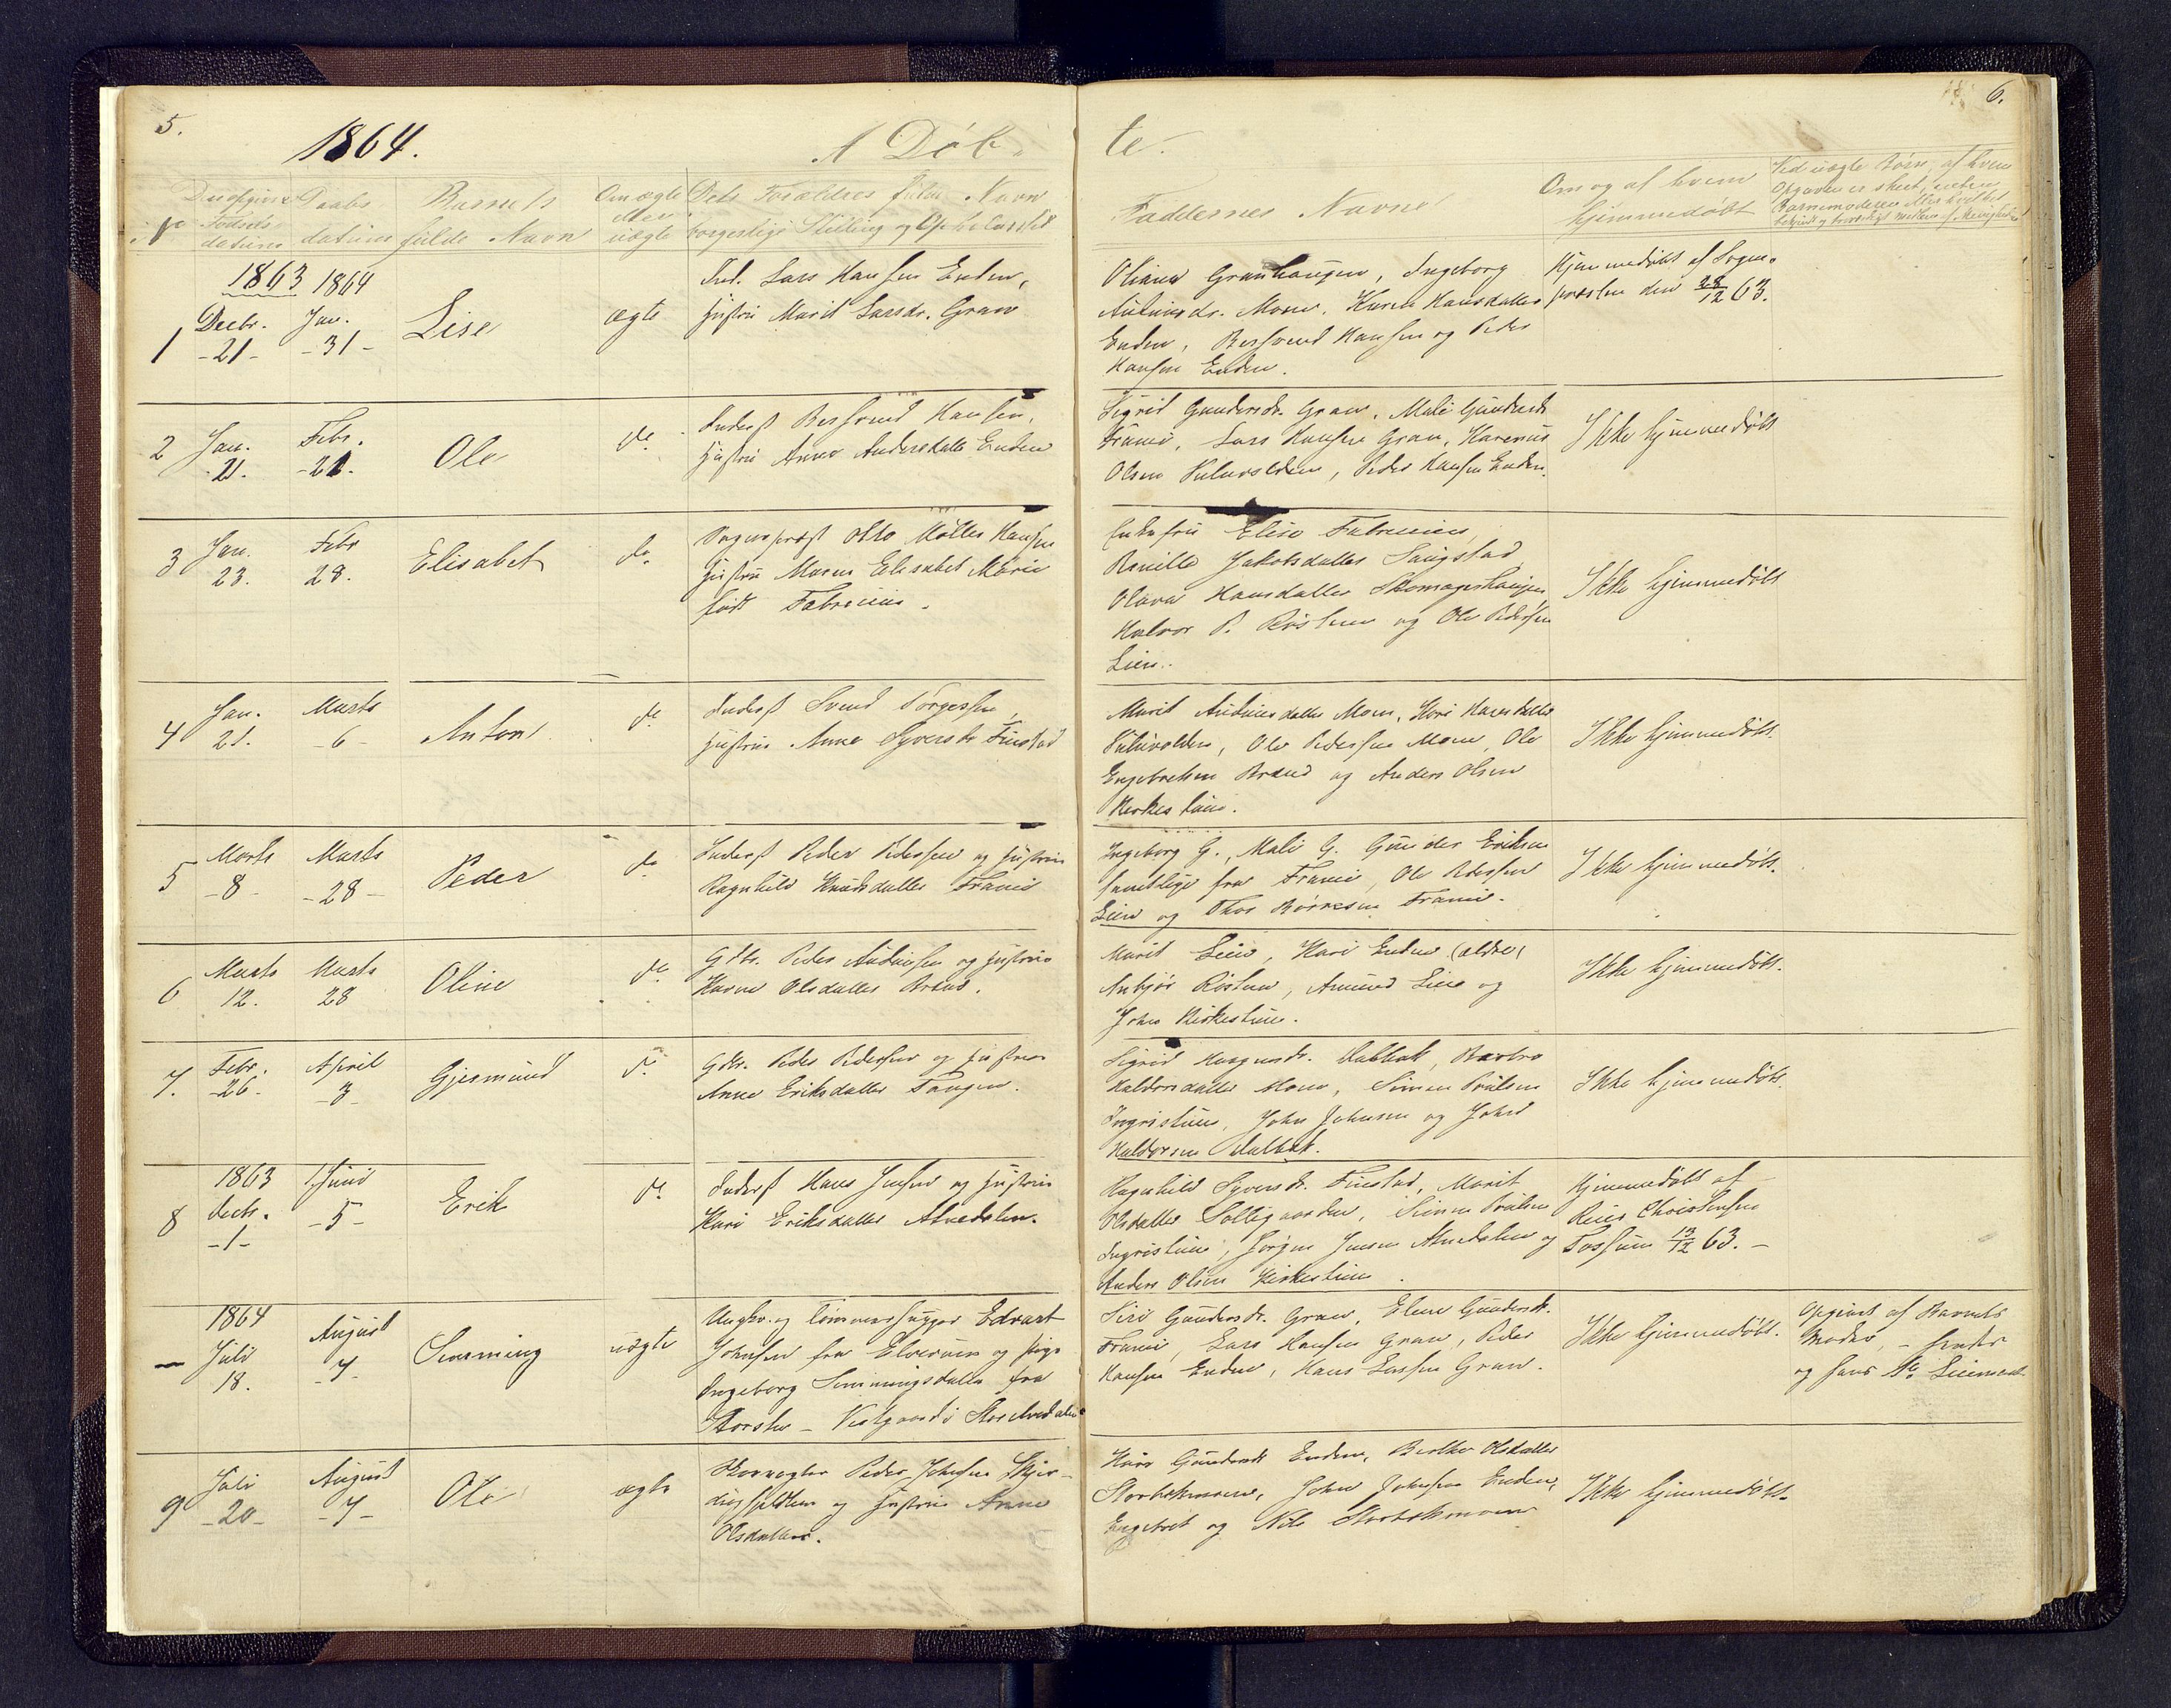 5.
1864.
A Døb-
No
Den opgivne Fødsels datum
Daabs datum
Barnets fulde Navn
Om ægte eller uægte
Dets Forældres fulde Navn
borgerlige Stilling og Opholdssted
1863 1864
1
Decbr.
-21-
Jan.
-31-
Lise
ægte
Ind. Lars Hansen Enden,
Hustru Marit Larsdr. Gran
2
Jan.
21.
Febr.
-21.
Ole
do
Inderst Bersvend Hansen,
Hustru Anne Andersdatter Enden
3
Jan.
23.
Febr
28.
Elisabet
do
Sognepræst Otto Møller Hansen
Hustru Maren Elisabet Marie
født Fabricius.
4
Jan.
21.
Marts
-6-
Anton
do
Inderst Svend
Hustru Anne Syversdr Finstad
5
Marts
-8-
Marts
-28-
Peder
do
Inderst Peder Pedersen og Hustru
Ragnhild Knudsdatter Framei
6
Marts
12.
Marts
28
Oline
do
Gdbr. Peder Audunsen og Hustru
Karen Olsdatter Brænd.
7.
Febr.
-26.
April
-3-
Gjermund
do
Gdbr. Peder Pedersen og Hustru
Anne Eriksdatter Tangen.
8
1863
Decbr.
-1-
Juni
-5-
Erik
do
Inderst Hans Jensen og Hustru
Kari Eriksdatter Atnedalen.
1864
-
Juli
18.
August
-7-
Semming
uægte
Ungkr. og Tømmerhugger Edvart
Johnsen fra Elverum og Pige
Ingeborg Semmingsdatter fra
Storsten - Vestgaard i Storelvedalen
9
Juli
-20-
August
-7-
Ole
ægte
Skovvogter Peder Johnsen
og Hustru Anne
Olsdatter.
6.
te.
Faddernes Navne
Om og af hvem
hjemmedøbt
Ved uægte Børn, af hvem
Opgaven er skeet, enten
Barnemoderen eller
Oliana Granhaugen, Ingeborg
Audunsdr. Moen, Karen Hansdatter
Enden, Bersvend Hansen og Peder
Hansen Enden.
Hjemmedøbt af Sogne-
præsten den 28/12 63.
Sigrid Gundersdr. Gran, Mali Gundersdr
Framei, Lars Hansen Gran, Karenus
Olsen, Peder Hansen Enden.
Ikke hjemmedøbt
Enkefru Elise Fabricius,
Jakobsdatter Saugstad,
Olava Hansdatter Skomagerhaugen,
Halvor P. Røsten og Ole Pedersen
Lien.
Ikke hjemmedøbt
Marit Audunsdatter Moen, Kari Hansdatter
Ole Pedersen Moen, Ole
Engebretsen Brænd og Anders Olsen
Kirkestuen.
Ikke hjemmedøbt.
Ingeborg G., Mali G. Gunder Eriksen
samtlige fra Framei, Ole Pedersen
Lien og Thor Framei.
Ikke hjemmedøbt.
Marit Lien, Kari Enden (ældre)
Anbjør Røsten, Amund Lien og
John Kirkestuen.
Ikke hjemmedøbt.
Sigrid Dalbak, Barbro
Haldorsdatter Moen, Simen Poulsen
Ingristuen, John Johnsen og John
Haldorsen Dalbak.
Ikke hjemmedøbt.
Ragnhild Syversdr. Finstad, Marit
Olsdatter Solligaarden, Simen Poulsen
Ingristuen, Jørgen Jensen Atnedalen og
Anders Olsen Kirkestuen.
Hjemmedøbt af
Christensen
Fossum 13/12 63. -
Siri Gundersdr. Gran, Eline Gundersdr.
Framei, Lars Hansen Gran, Peder
Hansen Enden, Hans Larsen Gran.
Ikke hjemmedøbt.
Opgivet af Barnets
Moder,
og
Kari Gundersdr Enden, Berthe Olsdatter
John Johnsen Enden,
Engebret og Nils
Ikke hjemmedøbt.